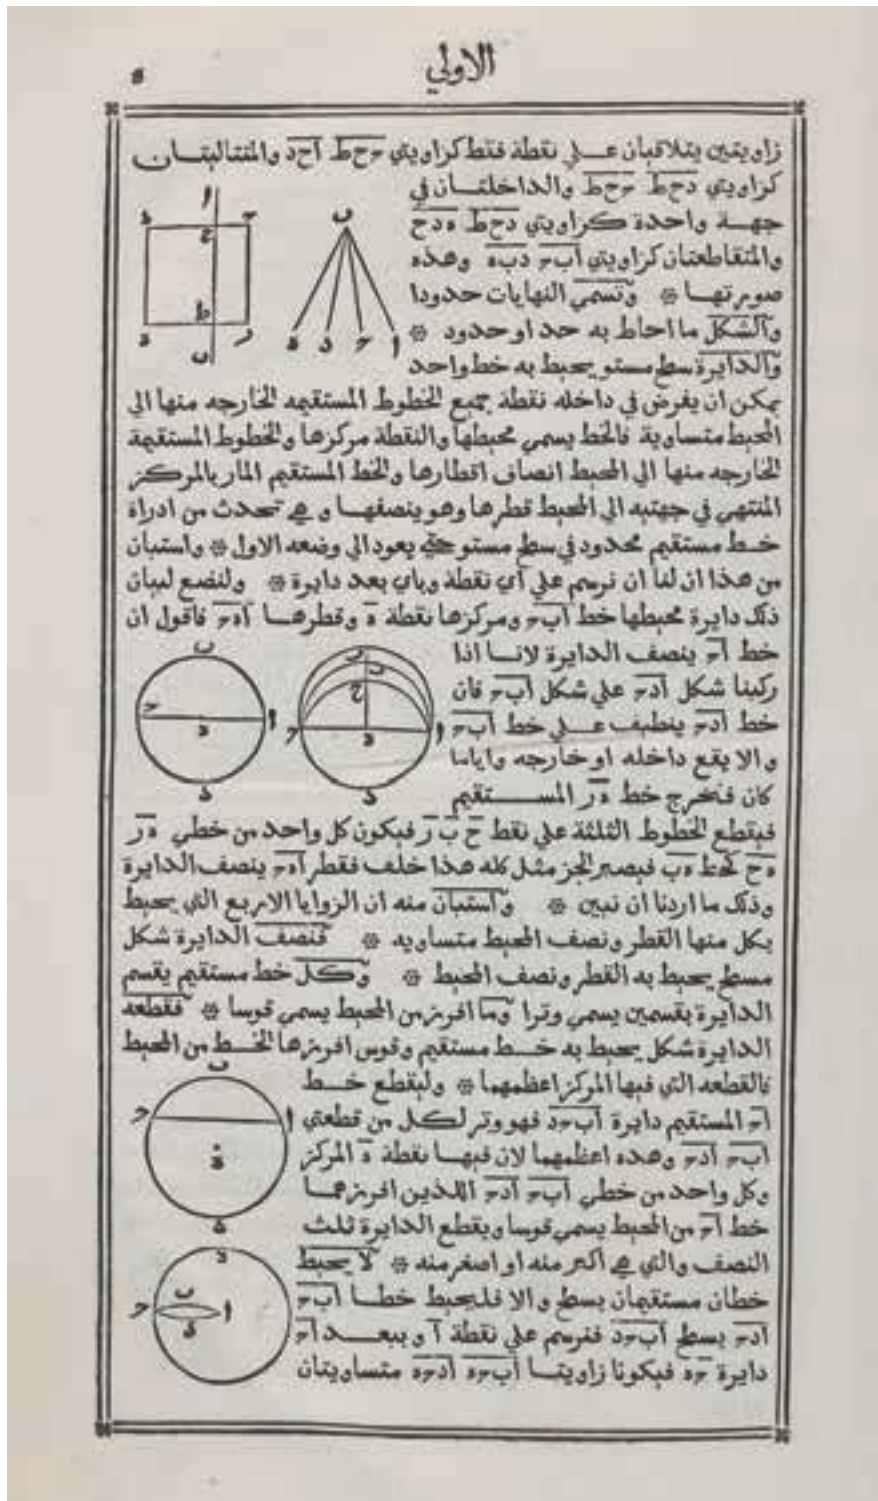 الاولي
زاويتين يتلاقيان علي نقطة فقط كزاويتي حط احد والمتتاليتان
كزاويتي دحط حط والداخلتان في
جهة واحدة كزاويتي دحط هدح
والمتقاطعتان كزاويتي ابح دبه وهذه
صورتها ❊ وتسمي النهايات حدودا
والشكل ما احاط به حد او حدود ❊
والدايرة سطح مستو يحيط به خط واحد
يمكن ان يفرض في داخله نقطة جميع الخطوط المستقيمه الخارجه منها الي
المحيط متساوية فالخط يسمي محيطها والنقطة مركزها والخطوط المستقيمة
الخارجه منها الي المحيط انصاف اقطارها والخط المستقيم المار بالمركز
المنتهي في جهتيه الي المحيط قطرها وهو ينصفها وهي تحدث من ادراة
خط مستقيم محدود في سطح مستو حتي يعود الي وضعه الاول ❊ واستبان
من هذا ان لنا ان نرسم علي اي نقطة وباي بعد دايرة ❊ ولنضع لبيان
ذلك دايرة محيطها خط ابح ومركزها نقطة ه وقطرها اهح فاقول ان
خط اح ينصف الدايرة لانا اذا
ركبنا شكل ادح علي شكل ابح فان
خط ادح ينطبف علي خط ابح
والا يقع داخله او خارجه واياما
كان فنخرج خط هر المستقيم
فيقطع الخطوط الثلثة علي نقط ح ب ر فيكون كل واحد من خطي هر
هح كخط هب فيصير الجز مثل كله هذا خلف فقطر اهح ينصف الدايرة
وذلك ما اردنا ان نبين ❊ واستبان منه ان الزوايا الاربع التي يحيط
بكل منها القطر ونصف المحيط متساويه ❊ فنصف الدايرة شكل
مسطح يحيط به القطر ونصف المحيط ❊ وكل خط مستقيم يقسم
الدايرة بقسمين يسمي وترا وما افرز من المحيط يسمي قوسا ❊ فقطعه
الدايرة شكل يحيط به خط مستقيم وقوس افرزها الخط من المحيط
فالقطعه التي فيها المركز اعظمهما ❊ وليقطع خط
اح المستقيم دايرة ابحد فهو وتر لكل من قطعتي
ابح ادح وهذه اعظمهما لان فيها نقطة ه المركز
وكل واحد من خطي ابح ادح اللذين افرزهما
خط اح من المحيط يسمي قوسا ويقطع الدايرة ثلث
النصف والتي هي اكبر منه او اصغر منه ❊ لا يحيط
خطان مستقيمان بسطح والا فليحيط خطا ابح
ادح بسطح ابحد فنرسم علي نقطة ا وببعد اح
دايرة حه فيكونا زاويتا ابحه ادحه متساويتان